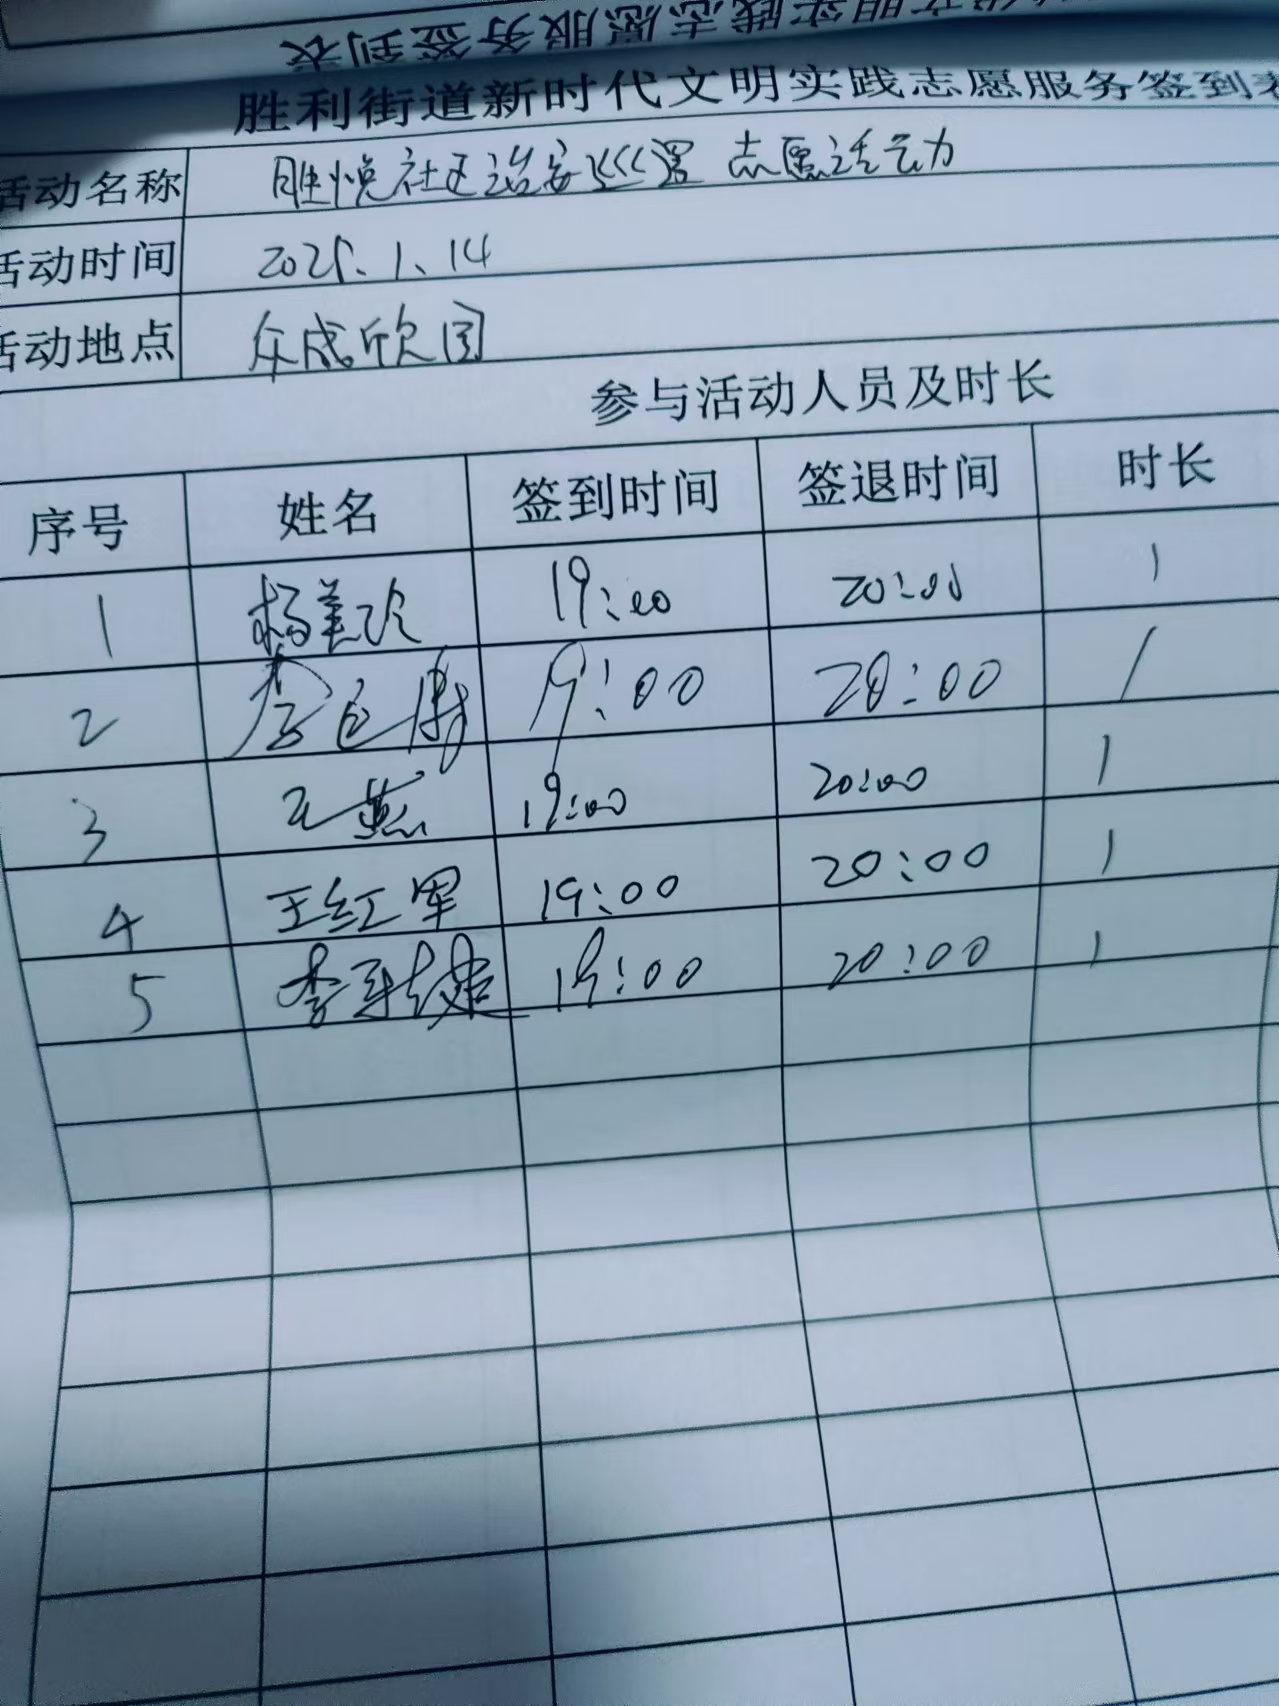 胜利街道新时代文明实践志愿服务签到表
活动名称 胜悦社区治安巡逻志愿活动
活动时间 2025.1.14
活动地点 众成欣园
参与活动人员及时长
序号 姓名 签到时间 签退时间 时长
1 杨美玲 19:00 20:00 1
2 李 19:00 20:00 1
3 王燕 19:00 20:00 1
4 王红军 19:00 20:00 1
5 李建 19:00 20:00 1